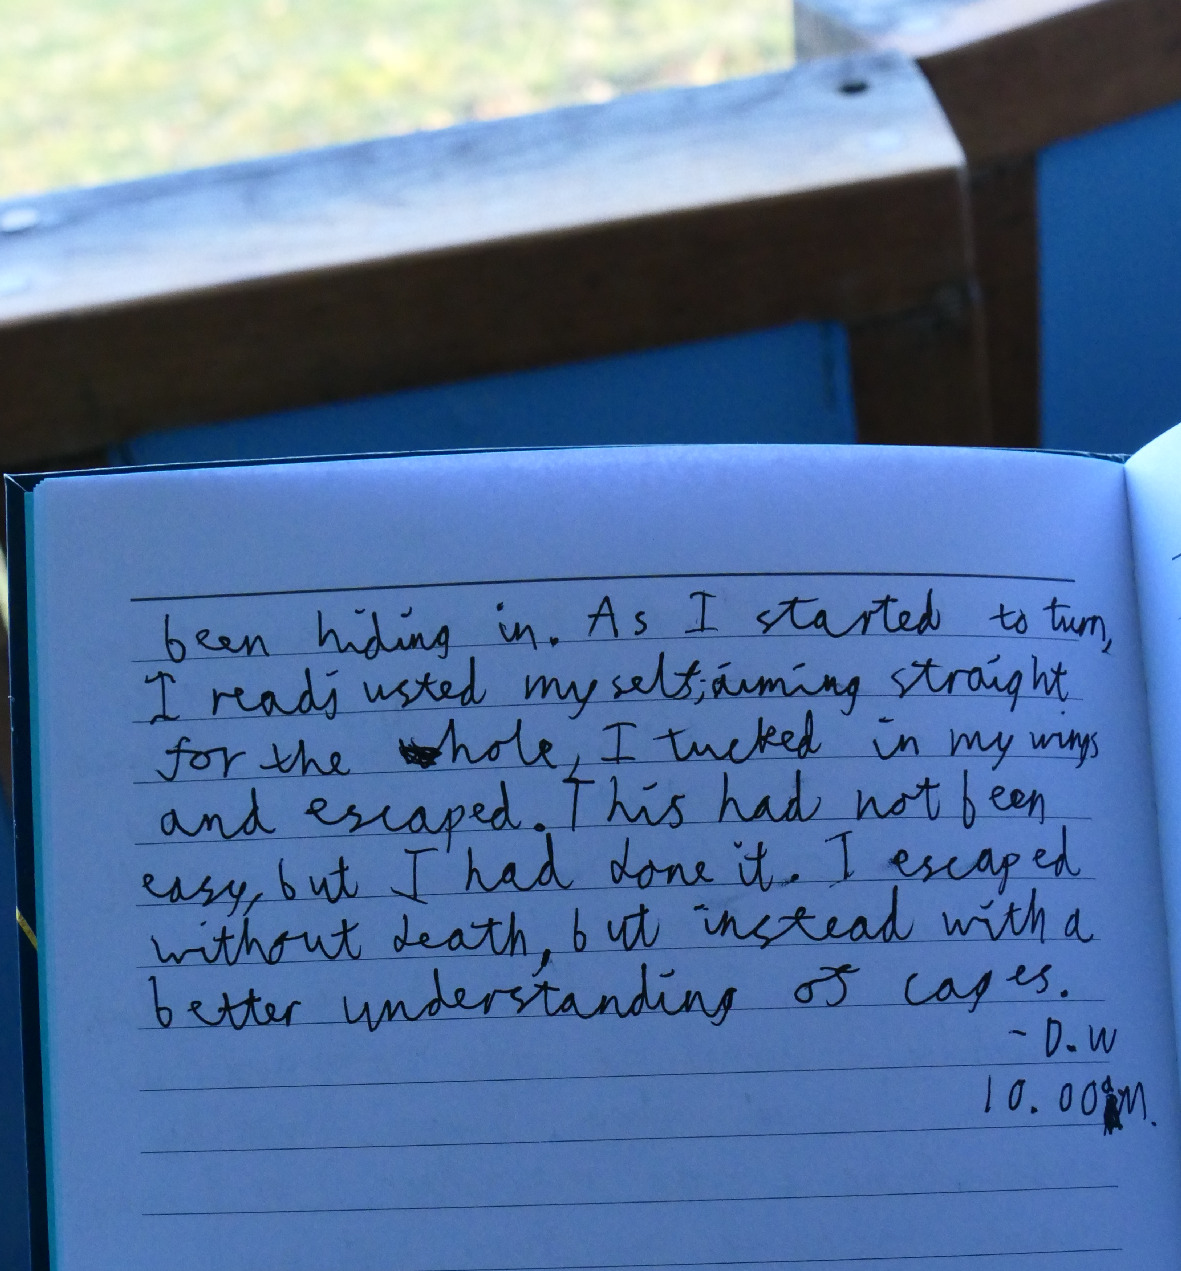 been hiding in. As I started to turn,
I readjusted myself; aiming straight
for the hole, I tucked in my wings
and escaped. This had not been
easy, but I had done it. I escaped
without death, but instead with a
better understanding of cages.
- D.W
10.00 M.